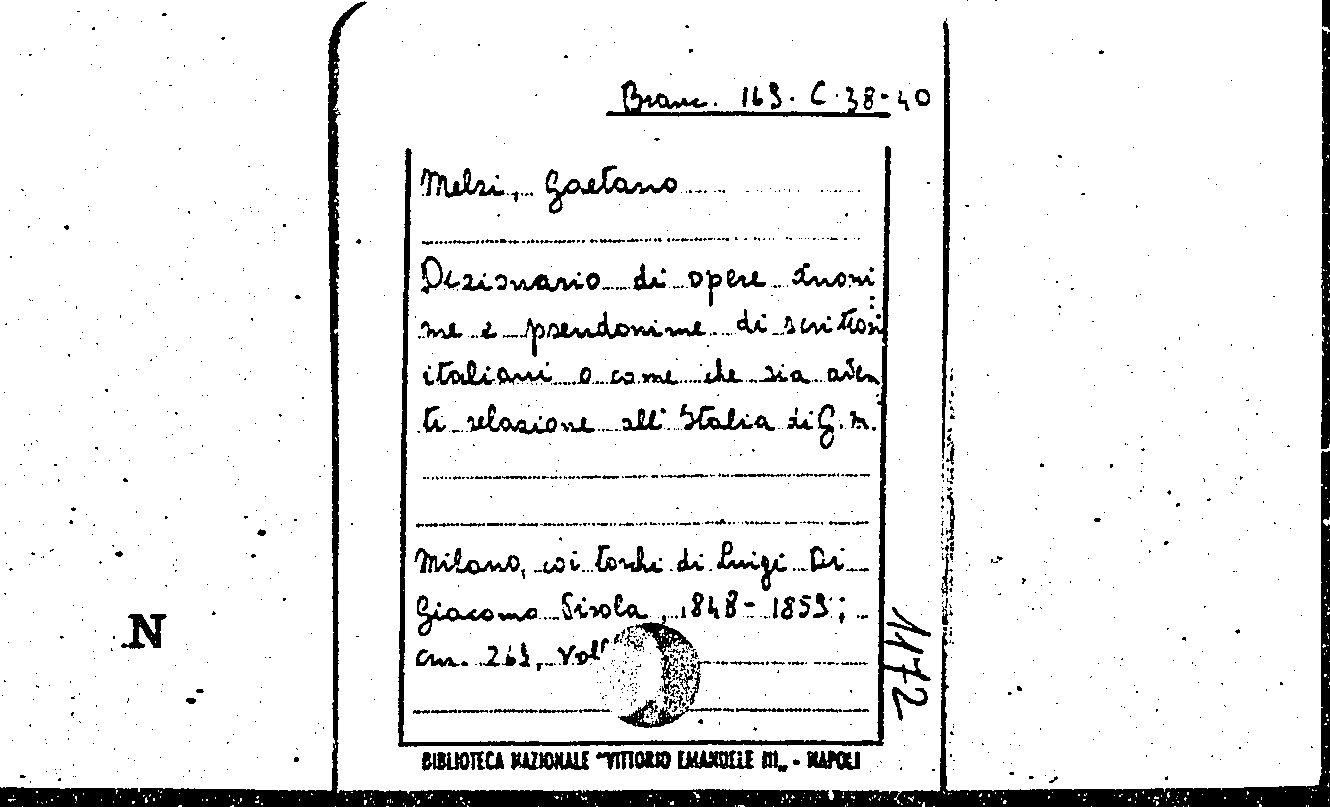 Branc. 169. C. 38-40
Melzi, Gaetano
Dizionario di opere anoni
me e pseudonime di scrittori
italiani o come che sia aven
ti relazione all'Italia di G. M.
Milano, coi torchi di Luigi Di
Giacomo Pirola, 1848-1859;
cm. Voll
1172
N
BIBLIOTECA NAZIONALE "VITTORIO EMANUELE III" - NAPOLI